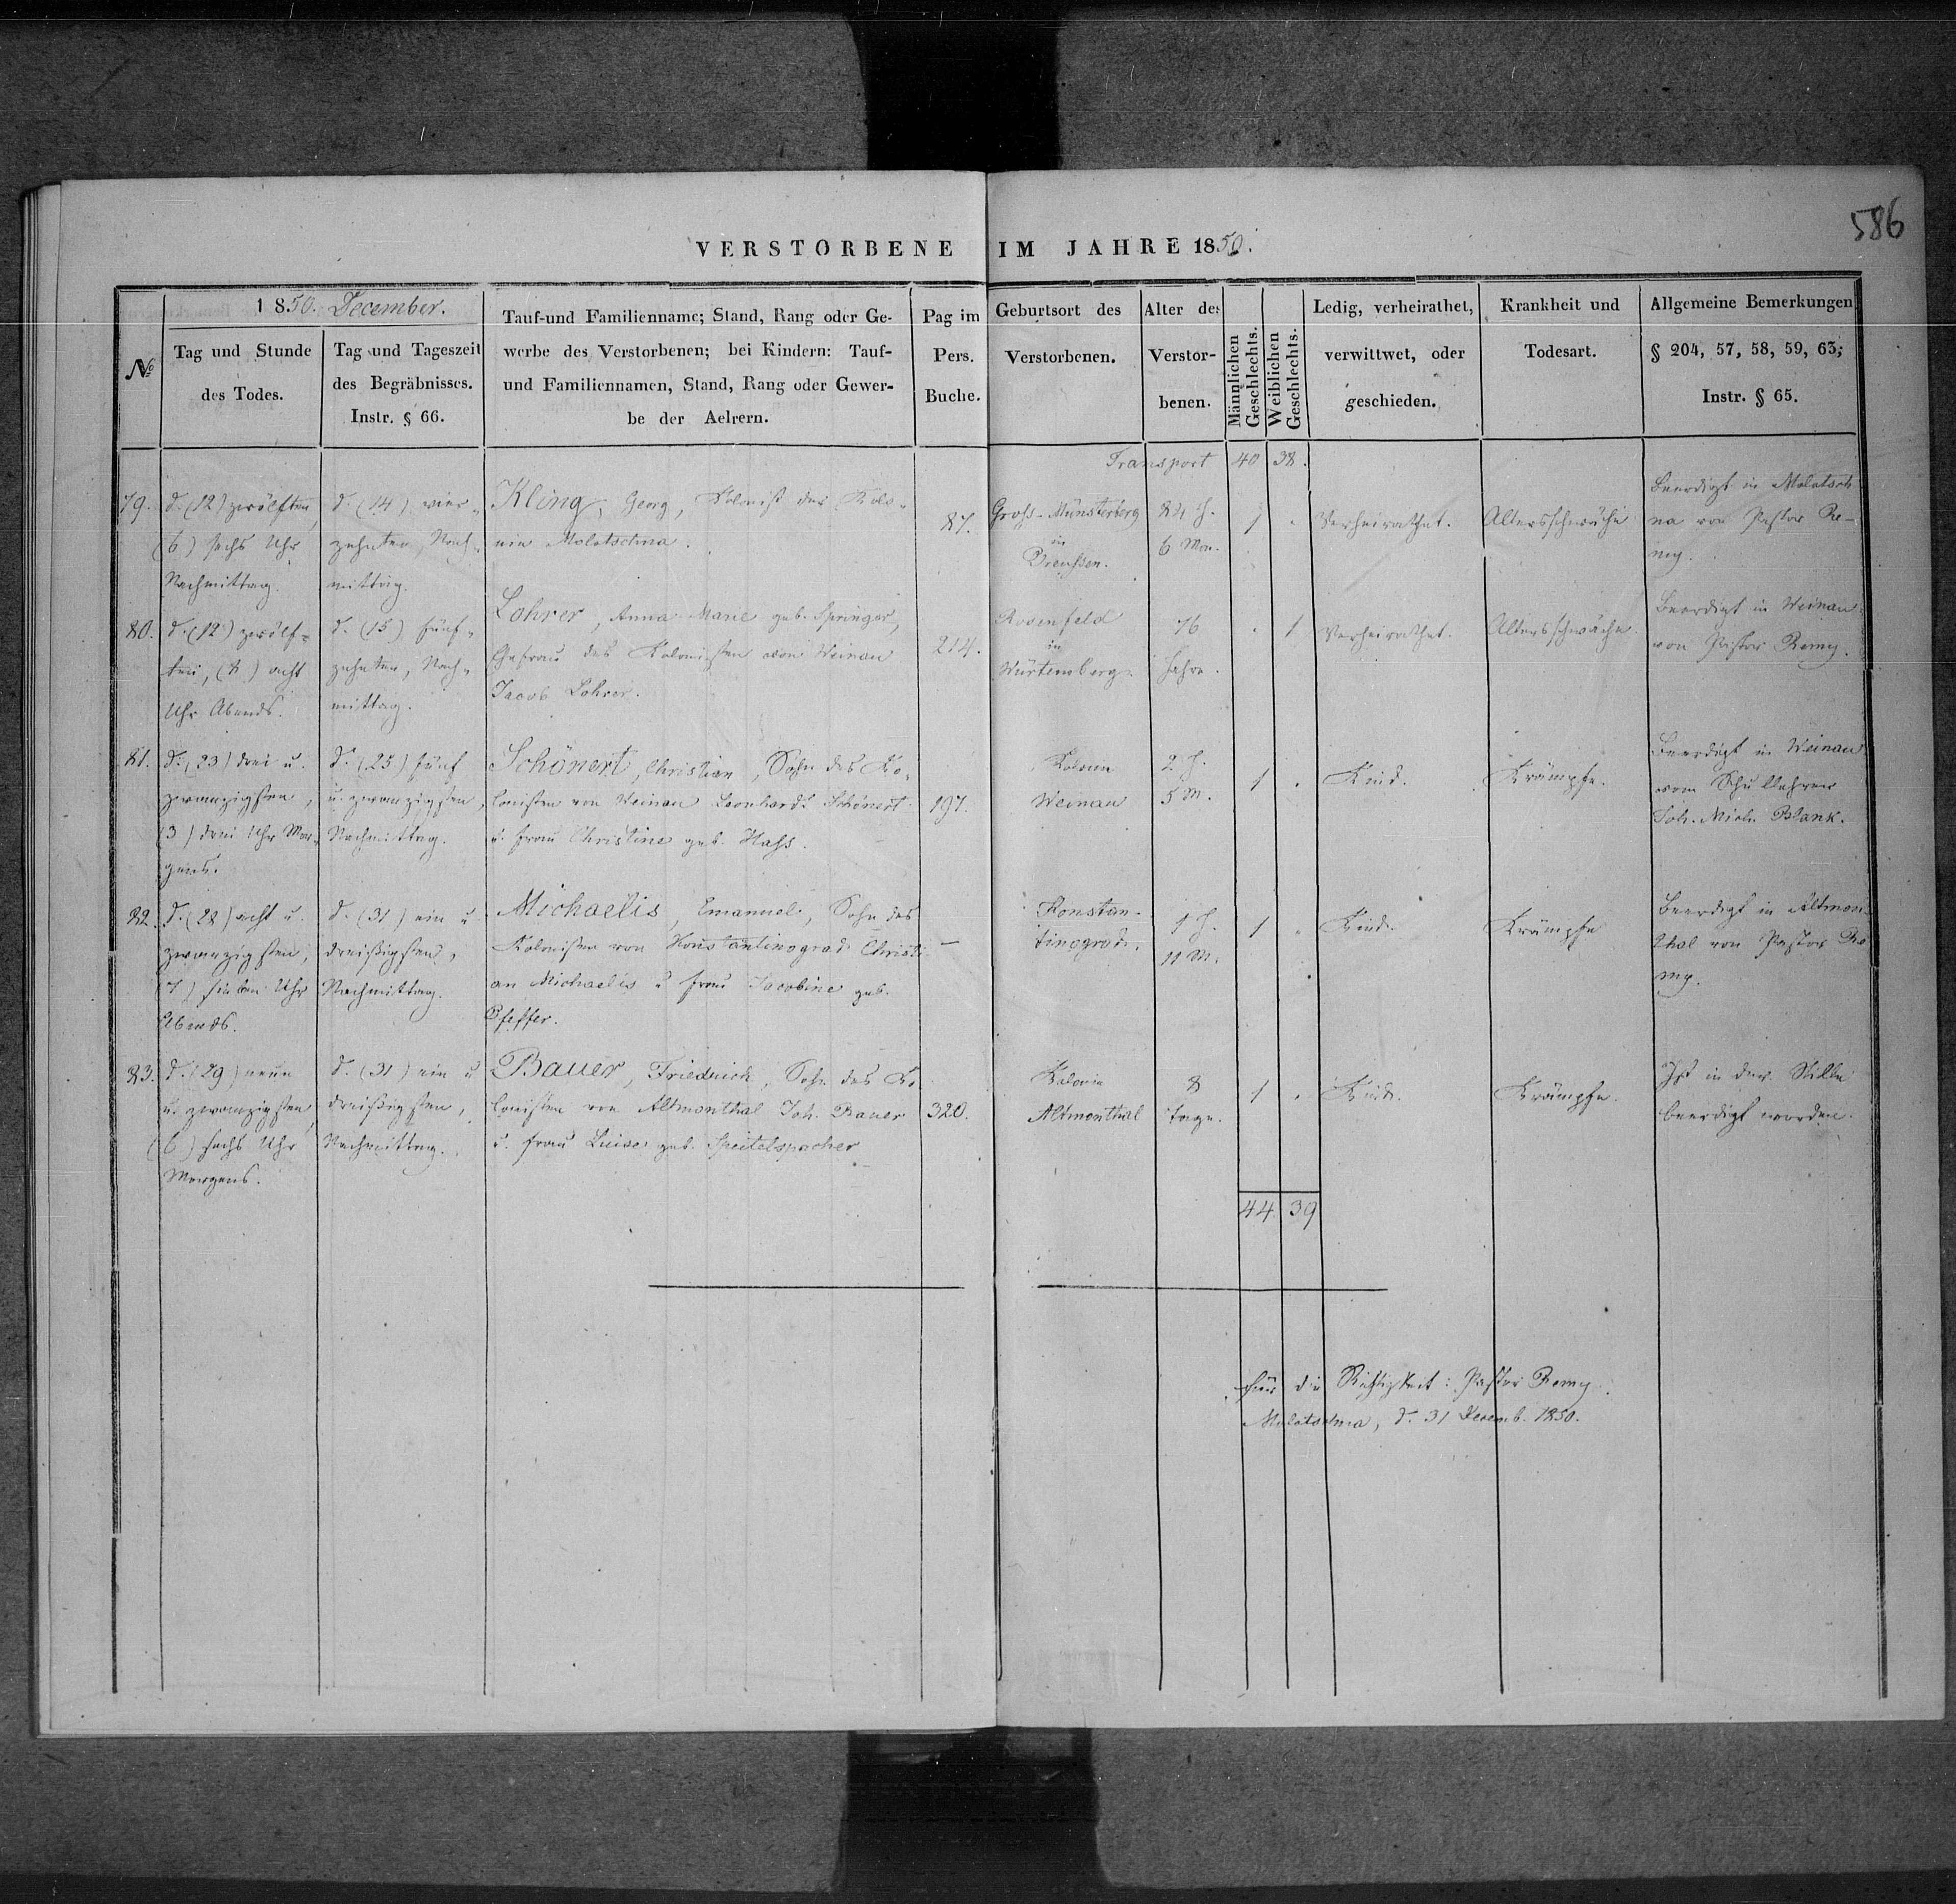 586
VERSTORBENE IM JAHRE 1850.
№
1850. December.
Tag und Stunde
des Todes.
Tag und Tageszeit
des Begräbnisses.
Instr. § 66.
Tauf-und Familienname; Stand, Rang oder Ge-
werbe des Verstorbenen; bei Kindern: Tauf-
und Familiennamen, Stand, Rang oder Gewer-
be der Aelrern.
Pag im
Pers.
Buche.
Geburtsort des
Verstorbenen.
Alter des
Verstor-
benen.
Männlichen
Geschlechts.
Weiblichen
Geschlechts.
Ledig, verheirathet,
verwittwet, oder
geschieden.
Krankheit und
Todesart.
Allgemeine Bemerkungen
§ 204, 57, 58, 59, 63;
Instr. § 65.
Transport 40 38.
79.
d. (12) zwölften,
(6) sechs Uhr
Nachmittag.
d. (14) vier-
zehnten, Nach-
mittag.
Kling, Georg, Kolonist der Kolo-
nie Molotschna.
87.
Gross-Münsterberg
in
Preussen.
84 J.
6 Mon.
1
Verheirathet.
Altersschwäche
Beerdigt in Molotsch
na von Pastor Re-
my.
80.
d. (12) zwölf-
ten, (8) acht
Uhr Abends.
d. (15) fünf-
zehnten, Nach-
mittag.
Lohrer, Anna Marie geb. Springer,
Ehefrau des Kolonisten von Weinau
Jacob Lohrer.
214.
Rosenfeld
in
Würtemberg.
76
Jahre.
1
Verheirathet.
Altersschwäche.
Beerdigt in Weinau
von Pastor Remy.
81.
d. (23) drei u.
zwanzigsten,
(3) drei Uhr Mor-
gens.
d. (25) fünf
u. zwanzigsten,
Nachmittag.
Schönert, Christian, Sohn des Ko-
lonisten von Weinau Leonhard Schönert
u. Frau Christine geb. Hass.
197.
Kolonie
Weinau
2 J.
5 M.
1
Kind.
Krämpfe.
Beerdigt in Weinau
vom Schullehrer
Joh. Mich. Blank.
82.
d. (28) acht u.
zwanzigsten,
(7) sieben Uhr
Abends.
d. (31) ein u
dreißigsten,
Nachmittag.
Michaelis, Emanuel, Sohn des
Kolonisten von Konstantinograd Christi-
an Michaelis u Frau Jacobine geb.
Pfeffer.
—
Konstan-
tinograd.
1 J.
11 M.
1
Kind.
Krämpfe
Beerdigt in Altmon-
thal von Pastor Re
my.
83.
d. (29) neun
u. zwanzigsten
(6) sechs Uhr
Morgens.
d. (31) ein u
dreißigsten,
Nachmittag.
Bauer, Friedrich, Sohn des Ko
lonisten von Altmonthal Joh. Bauer
u. Frau Luise geb. Speitelspacher
320.
Kolonie
Altmonthal
8
Tage.
1
Kind.
Krämpfe.
Ist in der Stille
beerdigt worden.
44 39
Für die Richtigkeit: Pastor Remy.
Molotschna, d. 31 Decemb. 1850.